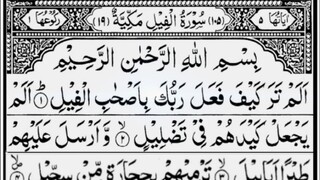 اٰیَاتُهَا ٥ (١٠٥) سُوْرَةُ الْفِیْلِ مَكِّیَّةٌ (١٩) رُكُوْعُهَا ١
بِسْمِ اللّٰهِ الرَّحْمٰنِ الرَّحِیْمِ
اَلَمْ تَرَ كَیْفَ فَعَلَ رَبُّكَ بِاَصْحٰبِ الْفِیْلِ ۝١ اَلَمْ
یَجْعَلْ كَیْدَهُمْ فِیْ تَضْلِیْلٍ ۝٢ وَّ اَرْسَلَ عَلَیْهِمْ
طَیْرًا اَبَابِیْلَ ۝٣ تَرْمِیْهِمْ بِحِجَارَةٍ مِّنْ سِجِّیْلٍ ۝٤